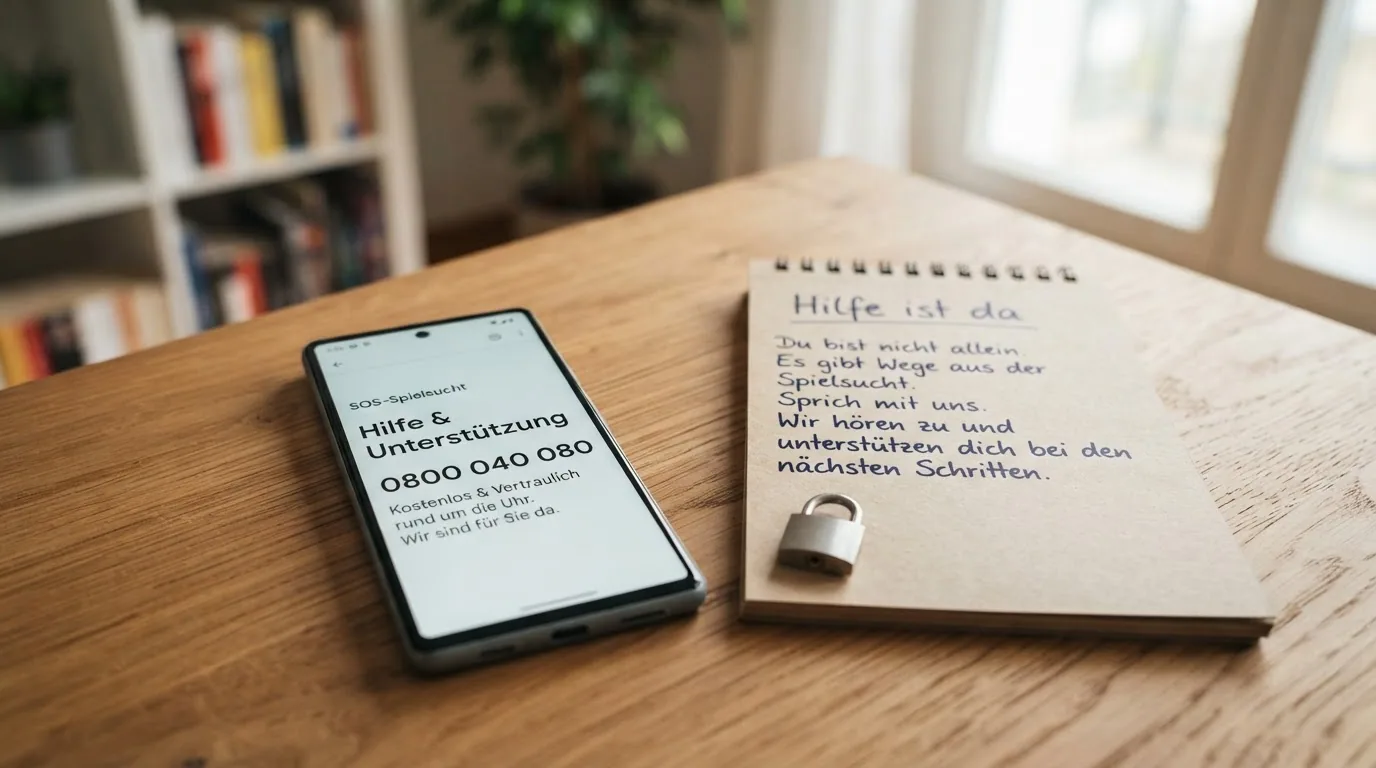 SOS-Spielsucht
Hilfe &
Unterstützung
0800 040 080
Kostenlos & Vertraulich
rund um die Uhr.
Wir sind für Sie da.
Hilfe ist da
Du bist nicht allein.
Es gibt Wege aus der
Spielsucht.
Sprich mit uns.
Wir hören zu und
unterstützen dich bei den
nächsten Schritten.